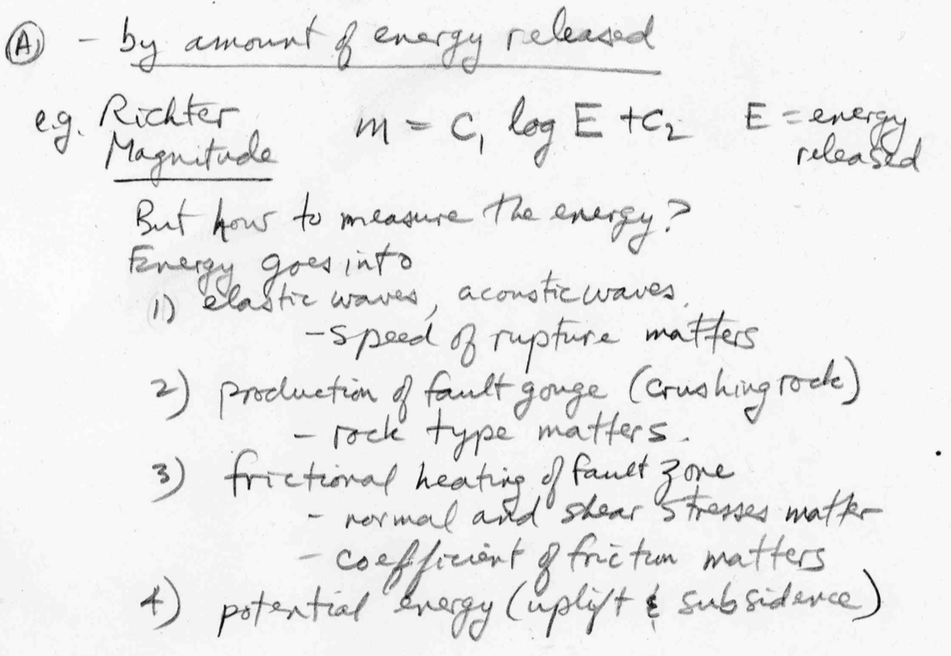 (A) - by amount of energy released
e.g. Richter Magnitude m = C₁ log E + C₂ E = energy released
But how to measure the energy?
Energy goes into
1) elastic waves, acoustic waves.
- speed of rupture matters
2) production of fault gouge (crushing rock)
- rock type matters.
3) frictional heating of fault zone
- normal and shear stresses matter
- coefficient of friction matters
4) potential energy (uplift & subsidence)